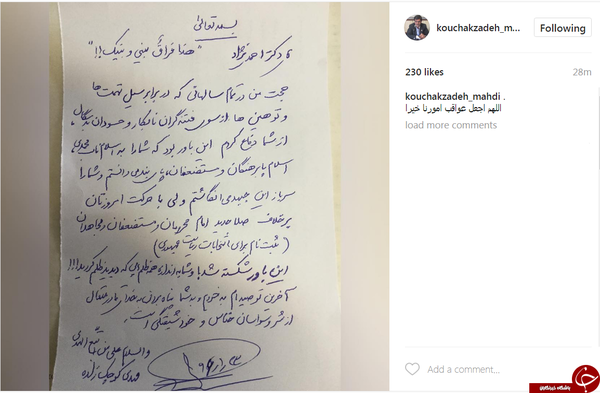 بسمه تعالی
آقای دکتر احمدی نژاد "هذا فراق بینی و بینک!!"
حجت من در تمام سالهائی که در برابر سیل تهمت ها
و توهین ها از سوی فتنه گران نابکار و حسودان
از شما دفاع کردم این باور بود که شما را به اسلام ناب محمدی
اسلام پابرهنگان و مستضعفان، پای بند می دانستم و شما را
سرباز این جبهه می انگاشتم ولی با حرکت امروزتان
برخلاف صلاحدید امام محرومان و مستضعفان و مجاهدان
(ثبت نام برای انتخابات ریاست جمهوری)
این باور شکسته شد! و شما به اندازه همه ظلم هایی که دیدید ظلم کردید!!!
آخرین توصیه ام به خودم و به شما پناه بردن به خدای متعال
از شر وسواس خناس و خودشیفتگی است.
والسلام علی من اتبع الهدی
مهدی کوچک زاده
۹۶/۱/۲۳
kouchakzadeh_m...
Following
230 likes
28m
kouchakzadeh_mahdi .
اللهم اجعل عواقب امورنا خیرا
load more comments
Add a comment...
باشگاه خبرنگاران